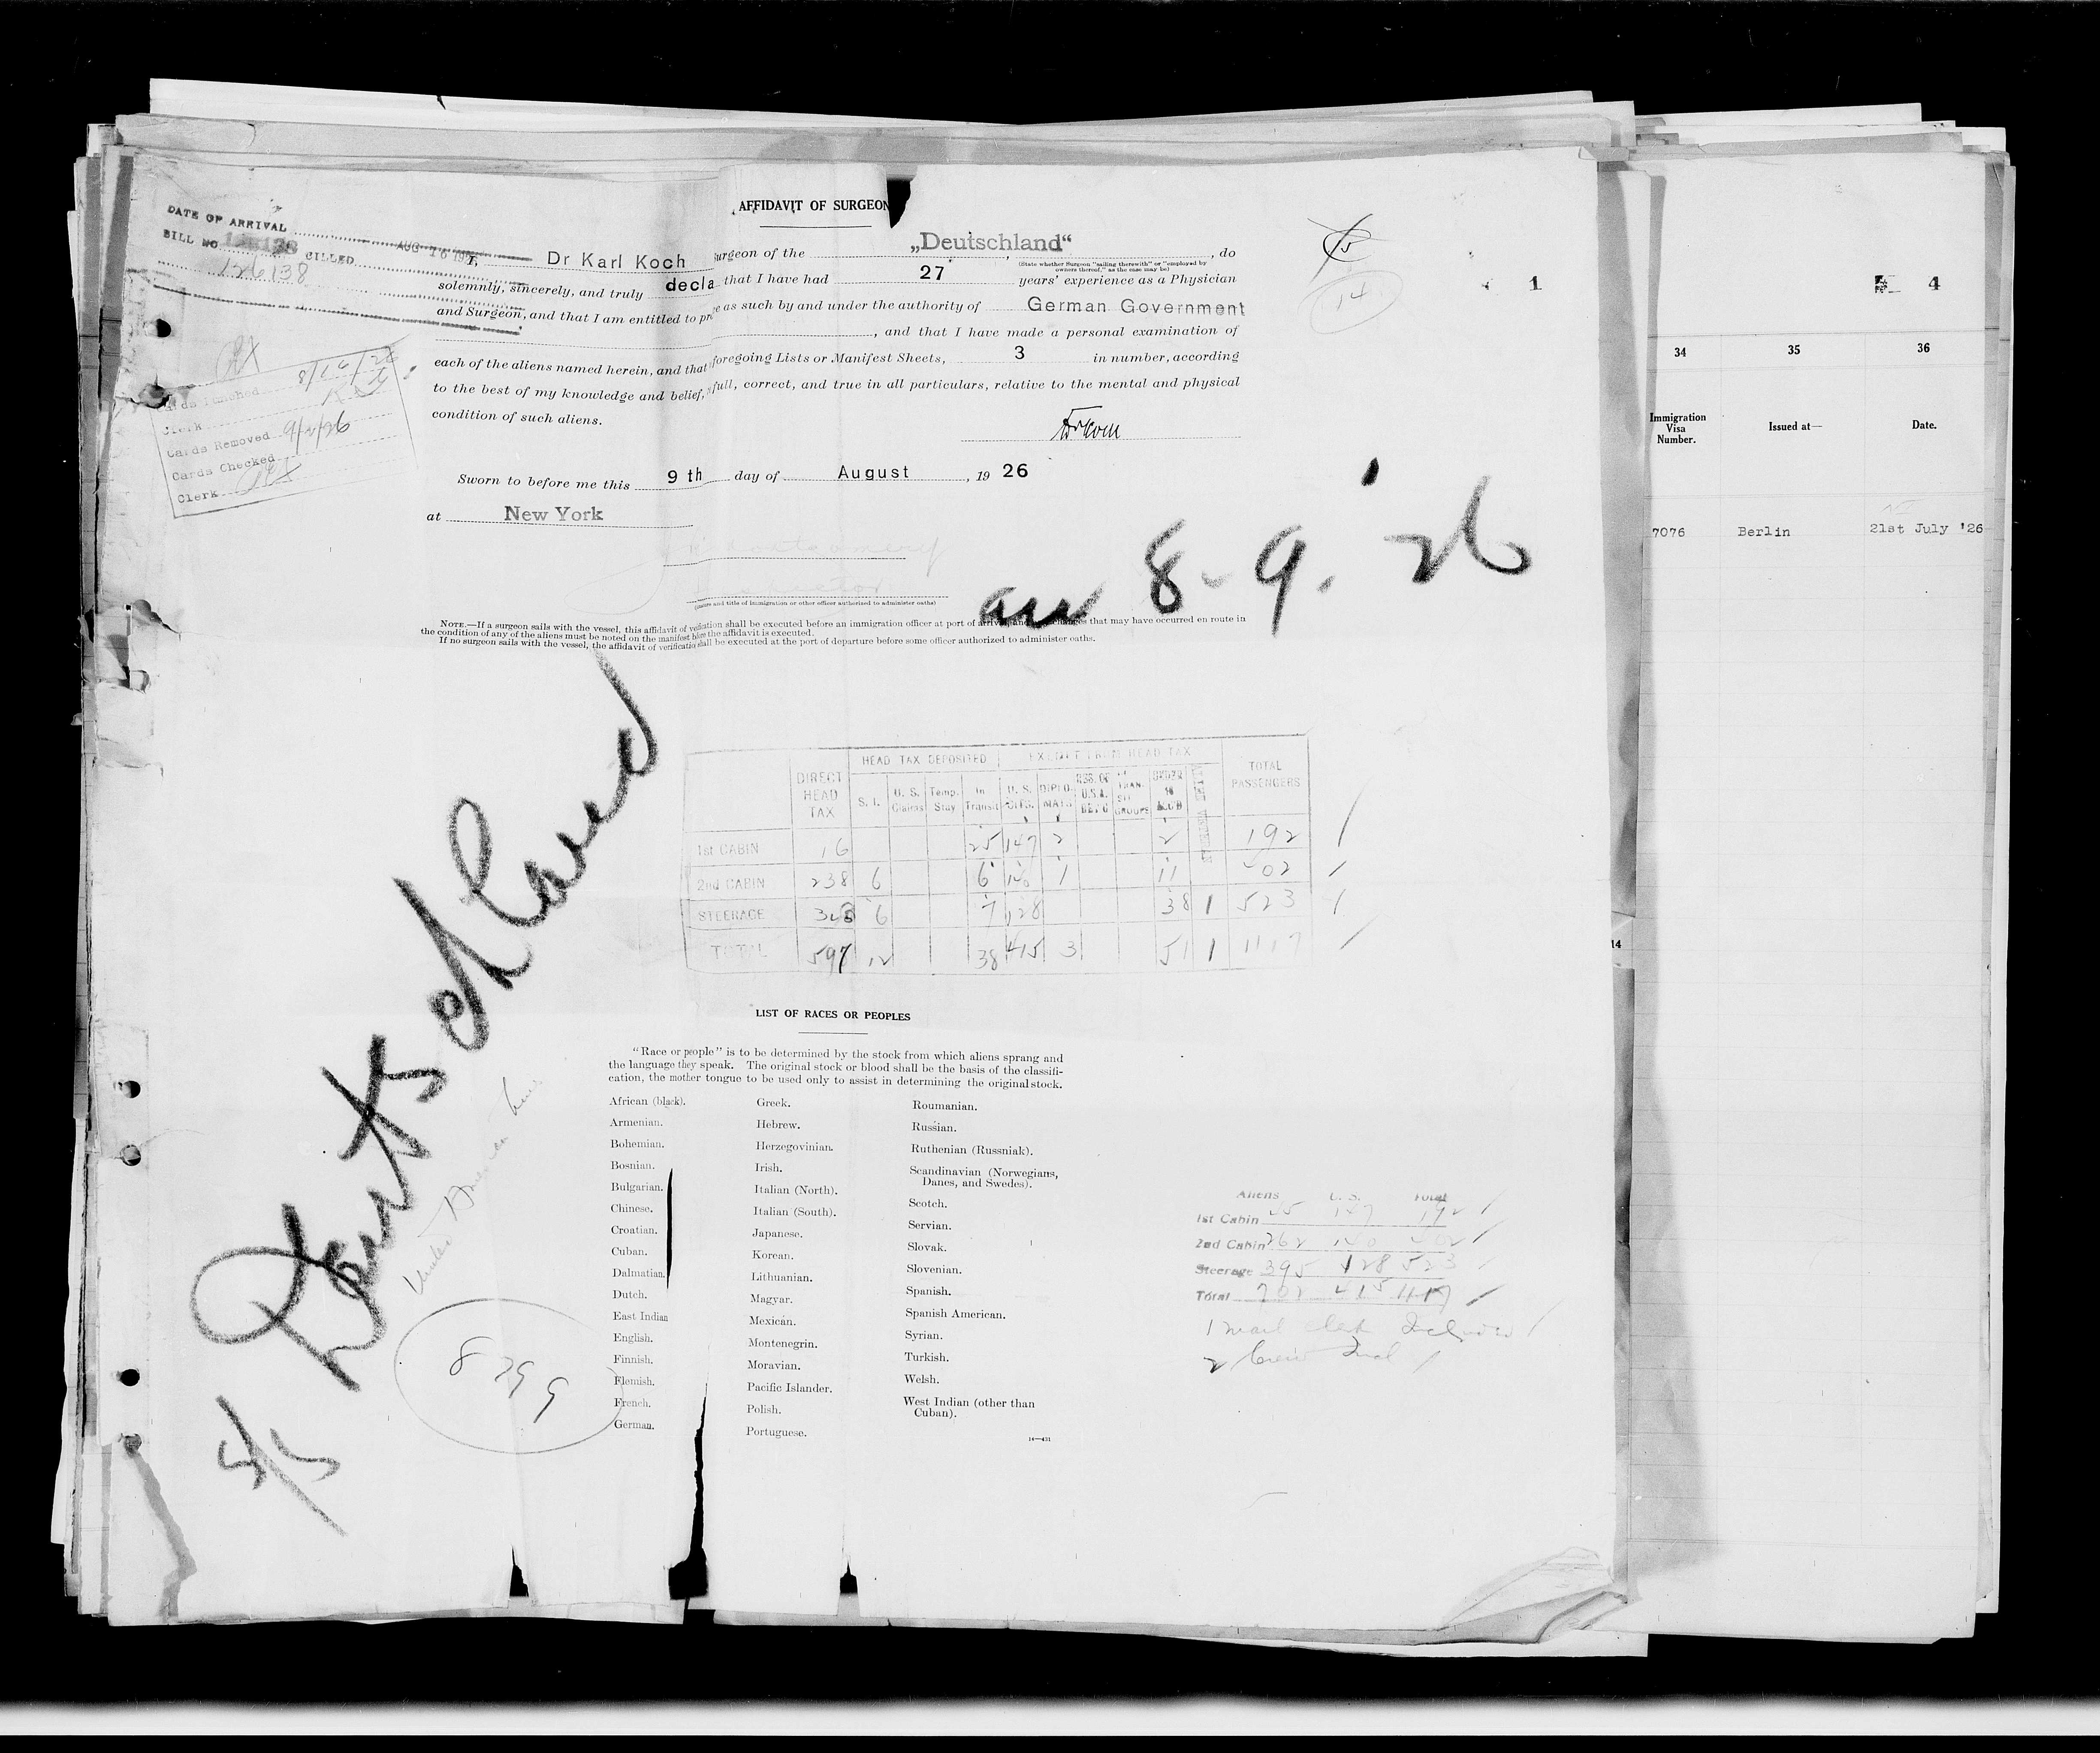 AFFIDAVIT OF SURGEON
DATE OF ARRIVAL AUG 16 192
BILL NO. BILLED
126138
I, Dr Karl Koch surgeon of the „Deutschland“, do
(State whether Surgeon "sailing therewith" or "employed by owners thereof," as the case may be)
solemnly, sincerely, and truly decla that I have had 27 years' experience as a Physician
and Surgeon, and that I am entitled to pr e as such by and under the authority of German Government
, and that I have made a personal examination of
each of the aliens named herein, and that foregoing Lists or Manifest Sheets, 3 in number, according
to the best of my knowledge and belief, full, correct, and true in all particulars, relative to the mental and physical
condition of such aliens.
15
14
1
Cards Punched 8/17/26
Clerk
Cards Removed
Cards Checked
Clerk
Sworn to before me this 9 th day of August, 19 26
at New York
(Name and title of immigration or other officer authorized to administer oaths)
arr 8-9.'26
NOTE.—If a surgeon sails with the vessel, this affidavit of verification shall be executed before an immigration officer at port of arrival, and changes that may have occurred en route in
the condition of any of the aliens must be noted on the manifest before the affidavit is executed.
If no surgeon sails with the vessel, the affidavit of verification shall be executed at the port of departure before some officer authorized to administer oaths.
DIRECT HEAD TAX | HEAD TAX DEPOSITED | EXEMPT FROM HEAD TAX | TOTAL PASSENGERS
S. I. | U. S. Claims | Temp. Stay | In Transit | U. S. CITS. | DIPLO-MATS | RES. OF U.S.A. RET'G | TRAN-SIT GROUPS | UNDER 16 ACC'D
1st CABIN 16 25 147 2 2 192
2nd CABIN 238 6 6 140 1 11 402
STEERAGE 343 6 7 128 38 1 523
TOTAL 597 12 38 415 3 51 1 1117
LIST OF RACES OR PEOPLES
"Race or people" is to be determined by the stock from which aliens sprang and
the language they speak. The original stock or blood shall be the basis of the classifi-
cation, the mother tongue to be used only to assist in determining the original stock.
African (black).
Armenian.
Bohemian.
Bosnian.
Bulgarian.
Chinese.
Croatian.
Cuban.
Dalmatian.
Dutch.
East Indian
English.
Finnish.
Flemish.
French.
German.
Greek.
Hebrew.
Herzegovinian.
Irish.
Italian (North).
Italian (South).
Japanese.
Korean.
Lithuanian.
Magyar.
Mexican.
Montenegrin.
Moravian.
Pacific Islander.
Polish.
Portuguese.
Roumanian.
Russian.
Ruthenian (Russniak).
Scandinavian (Norwegians,
Danes, and Swedes).
Scotch.
Servian.
Slovak.
Slovenian.
Spanish.
Spanish American.
Syrian.
Turkish.
Welsh.
West Indian (other than
Cuban).
14—431
Aliens U. S. Total
1st Cabin 45 147 192
2nd Cabin 262 140 402
Steerage 395 128 523
Total 702 415 1117
1 mail clerk Included
2 Crew Incl
S/S Deutschland
United American Line
8799
14
4
34
35
36
Immigration
Visa
Number.
Issued at—
Date.
7076
Berlin
21st July '26